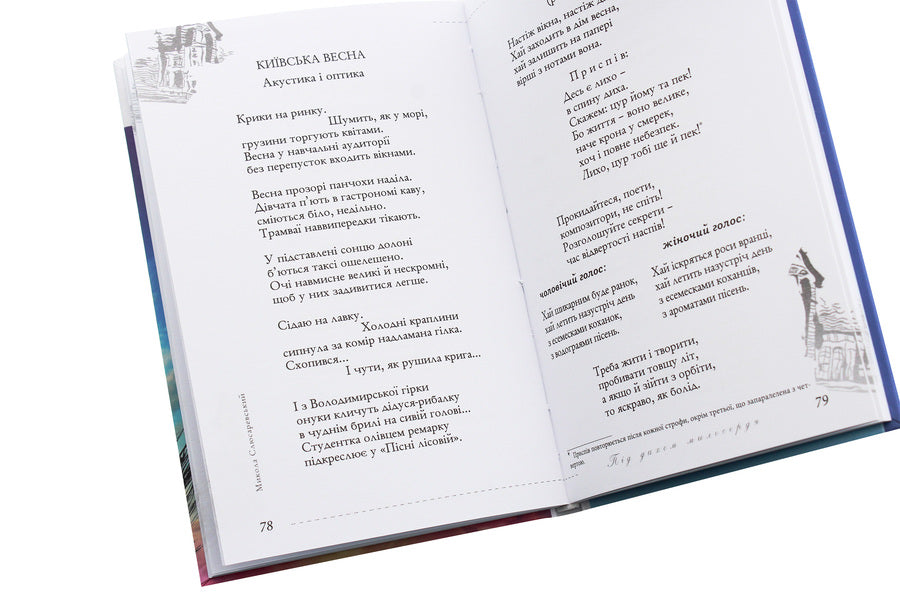 КИЇВСЬКА ВЕСНА
Акустика і оптика
Крики на ринку.
Шумить, як у морі,
грузини торгують квітами.
Весна у навчальні аудиторії
без перепусток входить вікнами.
Весна прозорі панчохи наділа.
Дівчата п’ють в гастрономі каву,
сміються біло, недільно.
Трамваї наввипередки тікають.
У підставлені сонцю долоні
б’ються таксі ошелешено.
Очі навмисне великі й нескромні,
щоб у них задивитися легше.
Сідаю на лавку.
Холодні краплини
сипнула за комір надламана гілка.
Схопився...
І чути, як рушила крига...
І з Володимирської гірки
онуки кличуть дідуся-рибалку
в чуднім брилі на сивій голові...
Студентка олівцем ремарку
підкреслює у «Пісні лісовій».
Микола Слюсаревський
78
Настіж вікна, настіж д
Хай заходить в дім весна,
хай залишить на папері
вірші з нотами вона.
Приспів:
Десь є лихо –
в спину диха.
Скажем: цур йому та пек!
Бо життя – воно велике,
наче крона у смерек,
хоч і повне небезпек.
Лихо, цур тобі ще й пек!*
Прокидайтеся, поети,
композитори, не спіть!
Розголошуйте секрети –
час відвертості наспів!
чоловічий голос:
Хай шикарним буде ранок,
хай летить назустріч день
з есемесками коханок,
з водограями пісень.
жіночий голос:
Хай іскряться роси вранці,
хай летить назустріч день
з есемесками коханців,
з ароматами пісень.
Треба жити і творити,
пробивати товщу літ,
а якщо й зійти з орбіти,
то яскраво, як болід.
* Приспів повторюється після кожної строфи, окрім третьої, що запаралелена з чет-
вертою.
Під дахом милосердя
79